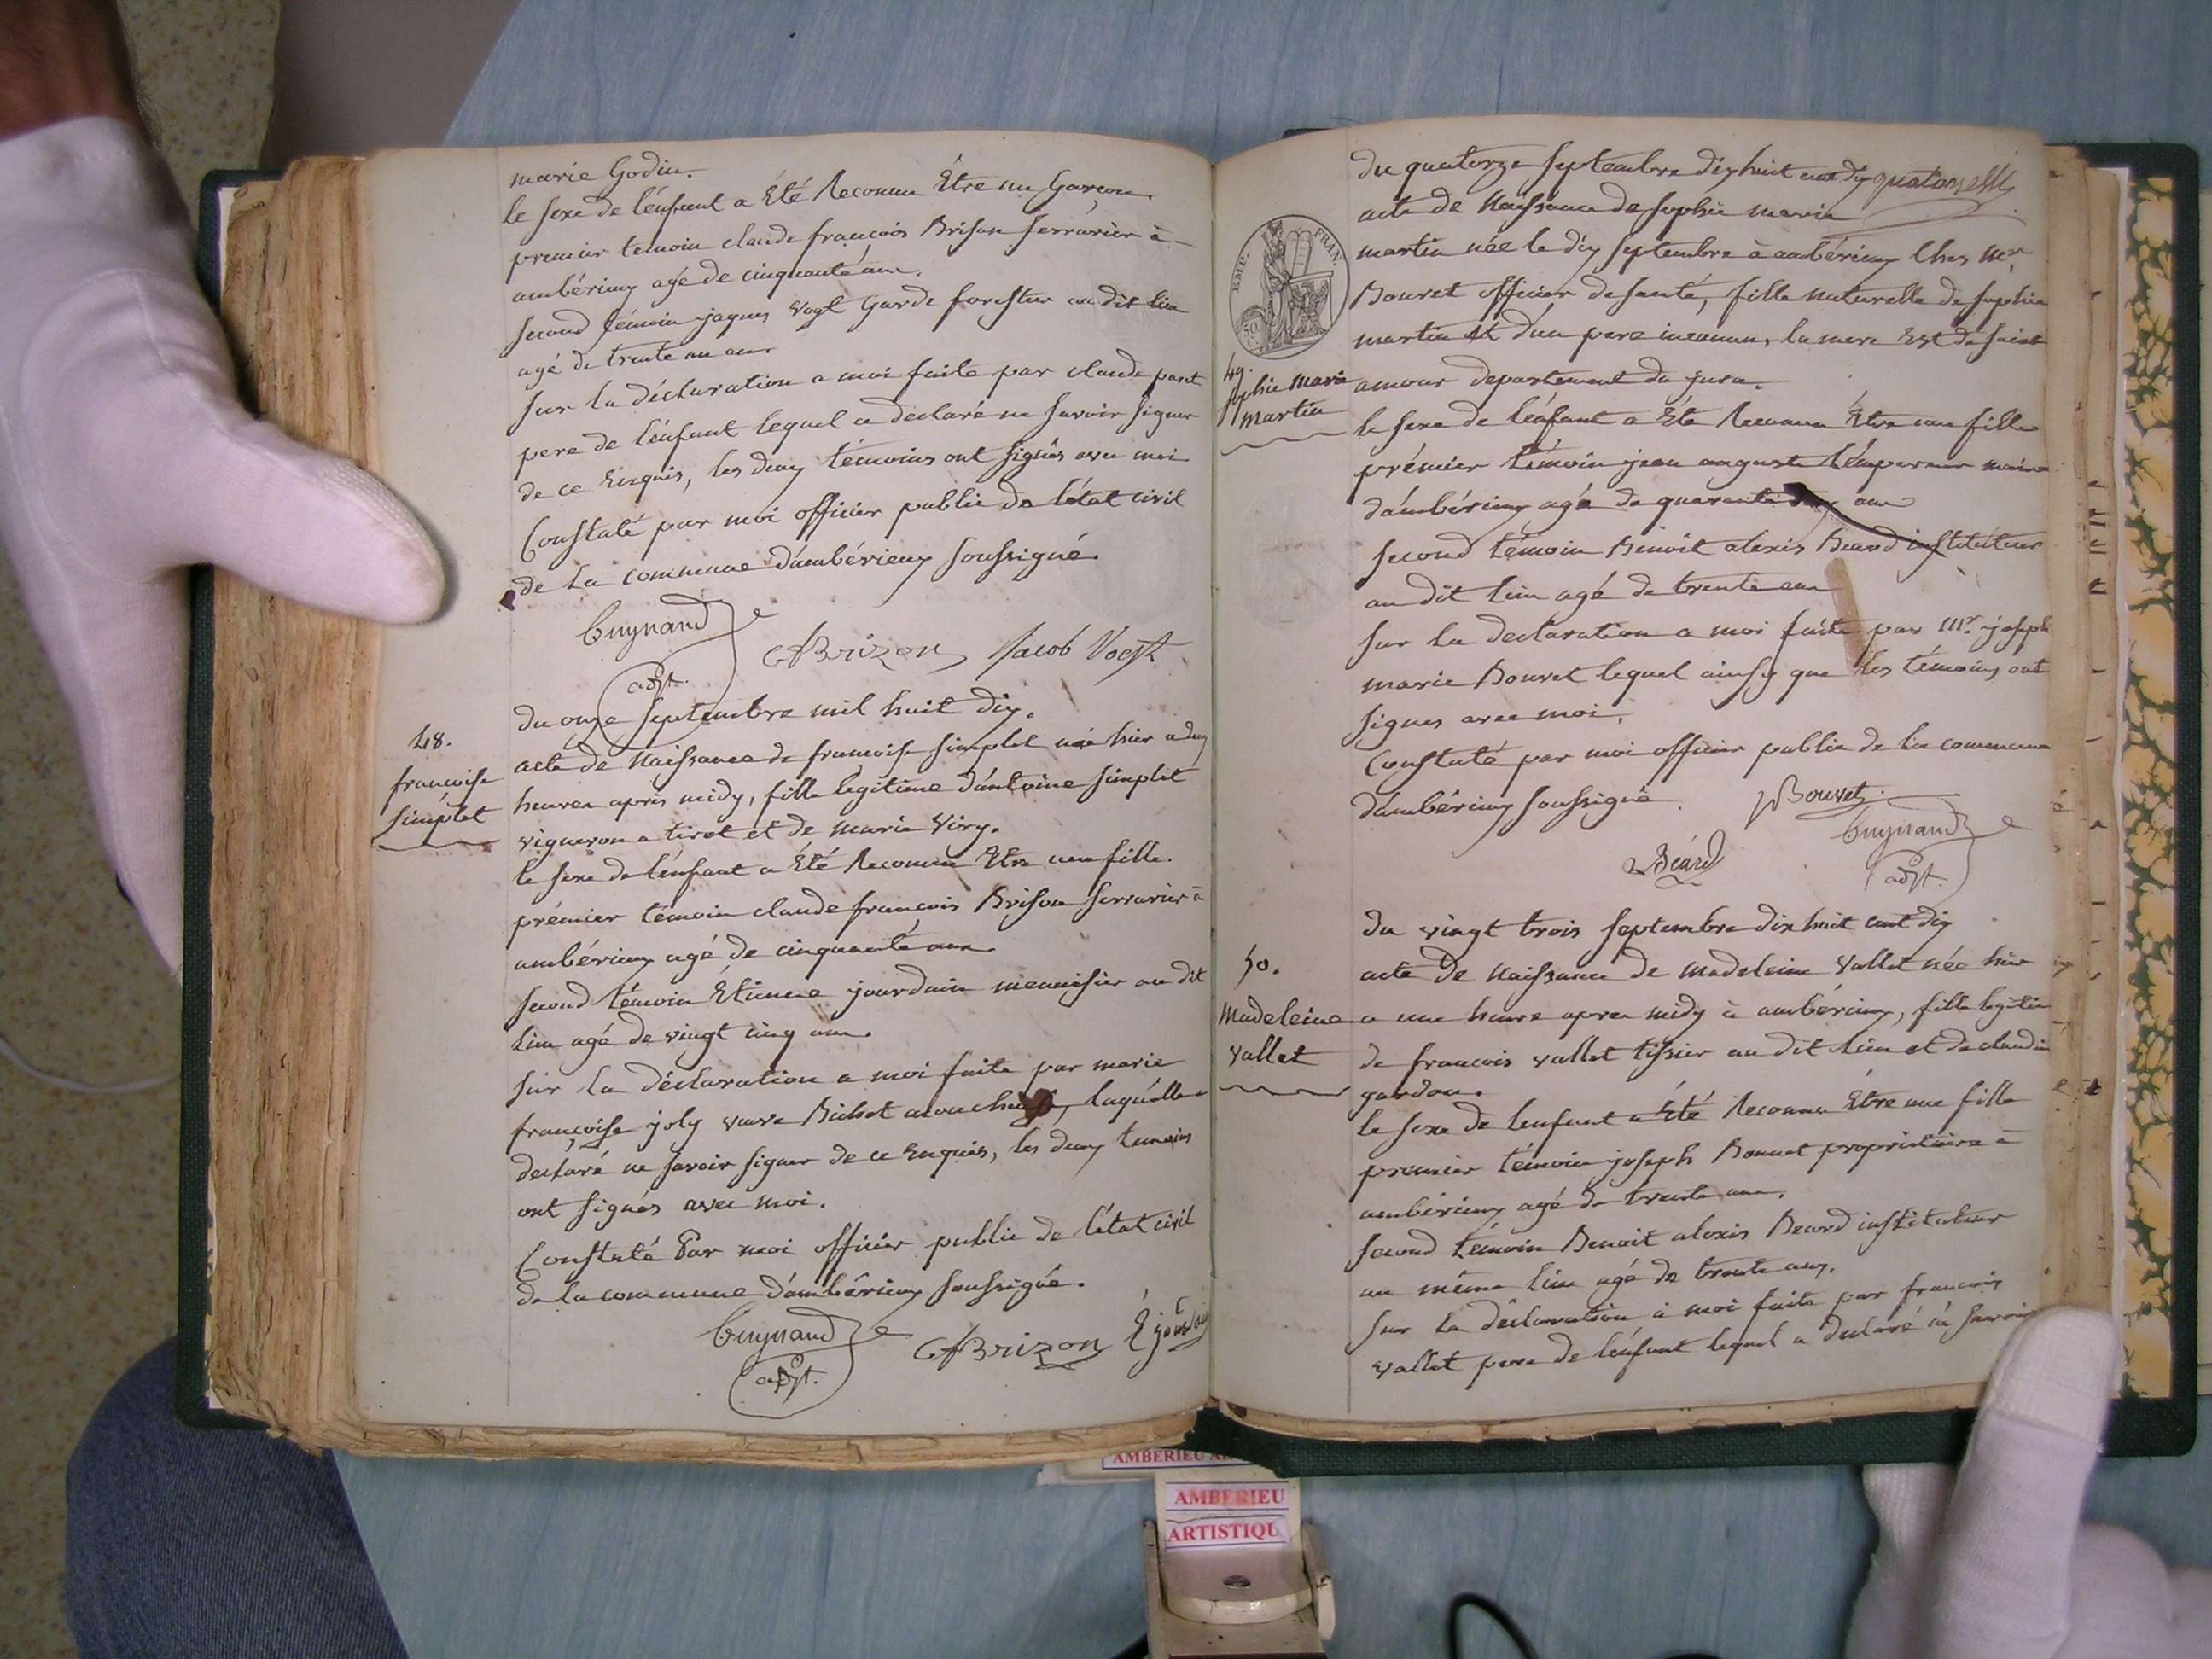 marie Godin.
le sexe de l'énfant a Été Reconnu Être un Garçon.
premier temoin claude françois Brison serrurier à
ambérieux agé de cinquanté ans.
second témoin jaques Vogt Garde forestier au dit lieu
agé de trente un ans
sur la déclaration a moi faite par claude
pere de l'énfant lequel a declaré ne savoir signer
de ce Enquis, les deux témoins ont signés avec moi
Constaté par moi officier public de l'état civil
de La commune d'ambérieux soussigné.
Cuynand
CfBrizon Jacob Vogt
adjt.
48.
francoise
simplet
du onze septembre mil huit dix.
acte de Naissance de francoise simplet née hier a deux
heures aprés midy, fille legitime d'antoine simplet
vigneron a tiret et de marie Viry.
le sexe de l'énfant a Été Reconnu Etre une fille.
prémier témoin claude francois Brison serrurier à
ambérieux agé de cinquanté ans.
second témoin Etienne jourdain menuisier au dit
Lieu agé de vingt cinq ans.
sur la déclaration a moi faite par marie
françoise joly veuve Bichot accoucheuse, laquélle a
declaré ne savoir signer de ce Enquis, les deux temoins
ont signés avec moi.
Constaté Par moi officier public de l'état civil
de la commune d'ambérieux soussigné.
Cuynand CfBrizon
adjt.
EMP. FRAN.
50
49.
sophie marie
martin
du quatorze septembre dix huit cent dix
acte de Naissance de sophie marie
martin née le dix septembre à ambérieux Chez Mr.
Bouvet officier de santé, fille naturelle de sophie
martin et d'un pere inconnu, la mere Est de saint
amour departement du jura.
le sexe de l'énfant a Été Reconnu Être une fille
prémier témoin jean auguste témpereur maire
d'ambérieux agé de quarante ans
second témoin Benoit alexis Beard instituteur
au dit lieu agé de trente ans
sur la declaration a moi faite par Mr. joseph
marie Bouvet lequel ainsy que les témoins ont
signes avec moi.
Constaté par moi officier public de la commune
d'ambérieux soussigné. Bouvet.
Cuynand
Béard
adjt.
50.
Madeleine
vallet
du vingt trois septembre dix huit cent dix
acte de Naissance de Madeleine Vallet née hier
a une heure apres midy à ambérieux, fille legitime
de francois vallet tissier au dit lieu et de claudine
gardon.
le sexe de l'enfant a Été Reconnu Être une fille
premier témoin joseph Bonnet propriétaire à
ambérieux agé de trente ans.
second témoin Benoit alexis Beard instituteur
au même lieu agé de trente ans.
sur la déclaration à moi faite par francois
vallet pere de l'énfant lequel a declaré né savoir
AMBERIEU
AMBERIEU
ARTISTIQU